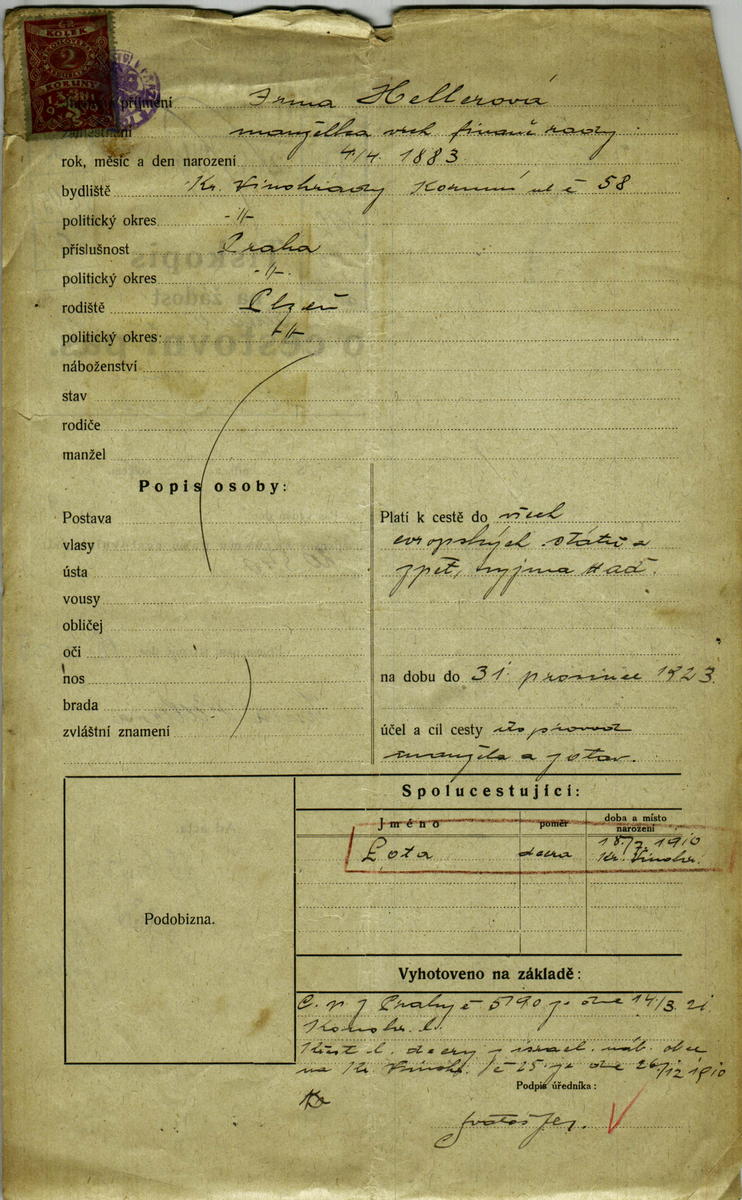 KOLEK
2
KORUNY
příjmení Irma Hellerová
zaměstnání manželka vrch. finanč rady
rok, měsíc a den narození 4/4. 1883
bydliště Kr. Vinohrady Korunní ul č 58
politický okres -"-
příslušnost Praha
politický okres -"-
rodiště Plzeň
politický okres: -"-
náboženství
stav
rodiče
manžel
Popis osoby:
Postava
vlasy
ústa
vousy
obličej
oči
nos
brada
zvláštní znamení
Platí k cestě do všech
evropských států a
zpět, vyjma
na dobu do 31. prosince 1923.
účel a cíl cesty doprovod
manžela a zotav.
Podobizna.
Spolucestující:
Jméno poměr doba a místo narození
Lota dcera 18/7. 1910 Kr. Vinohr.
Vyhotoveno na základě:
Prahy č 5190 ze dne 14/3. 21
Křest l. dcery israel. náb. obce
na Kr. Vinohr. č 25 ze dne 26/12 1910
Podpis úředníka: